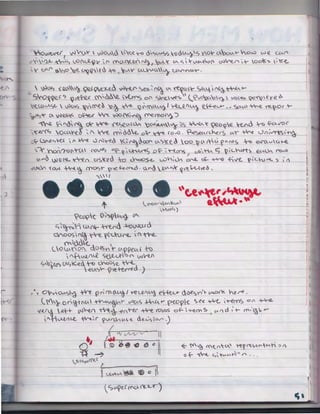 "However, what I would like to discuss today is not about how we can
utilize this concept in marketing, but a situation when it looks like
it can also be applied to, but actually cannot.
I was really perplexed when seeing a report saying that
"Shoppers prefer middle items on shelves". (Probably I was perplexed
because I was primed by the primacy/recency effect... saw the report
just a week after the working memory)
The finding of the research basically is that people tend to favor
items located in the middle of the row. Researchers at the University
of Chester in the United Kingdom asked 100 participants to evaluate
17 horizontal rows of pictures of items, with 5 pictures each row
and were then asked to choose which one of the five pictures in
each row they most preferred and least preferred.
"center-stage
effect."
(non-identical
items)
People Display a
significant trend toward
choosing the picture in the
middle
(location doesn't appear to
influence selection when
subjects asked to choose the
least preferred...)
∴ Obviously the primacy/recency effect doesn't work here.
(My original thought was that people see the items on the
very left when they enter the rows of items, and it might
influence their purchase decision.)
← my mental representation
of the situation...
(Supermarket)
51